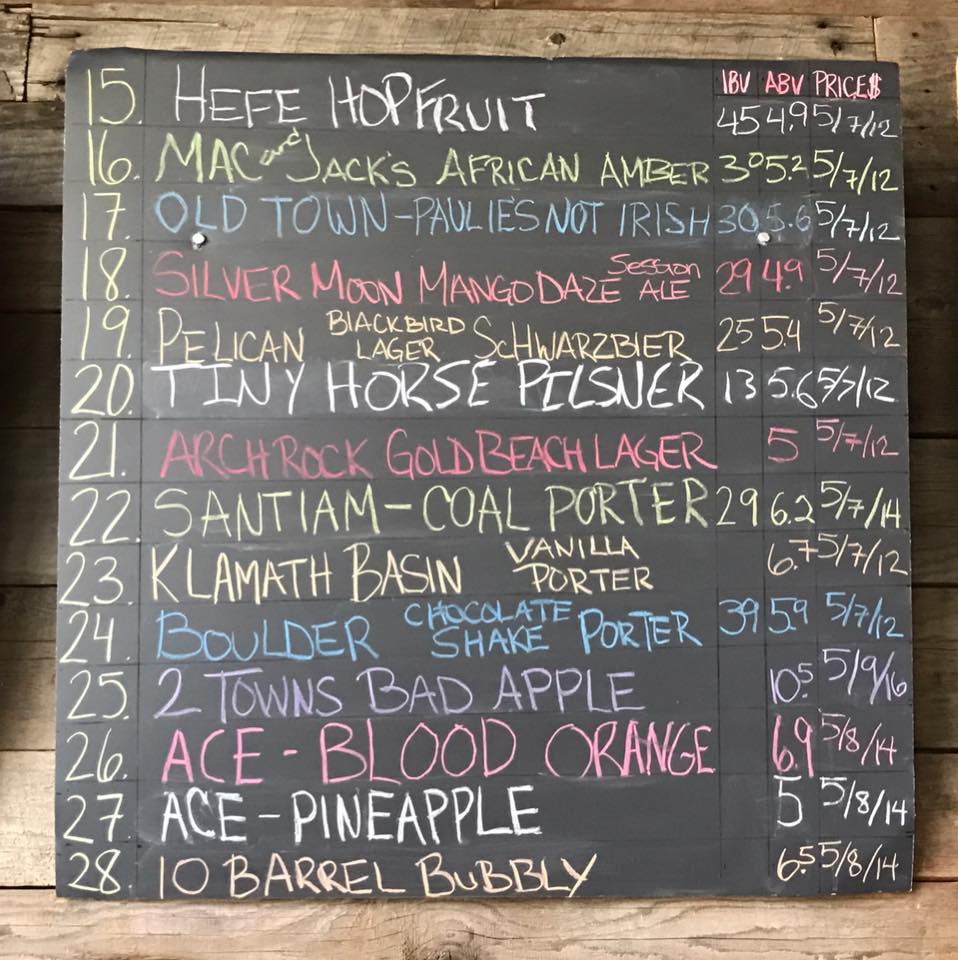 IBV ABV PRICE$
15. HEFE HOPFRUIT 45 4.9 5/7/12
16. MAC and JACK'S AFRICAN AMBER 30 5.2 5/7/12
17. OLD TOWN-PAULIES NOT IRISH 30 5.6 5/7/12
18. SILVER MOON MANGO DAZE SESSION ALE 29 4.9 5/7/12
19. PELICAN BLACKBIRD LAGER SCHWARZBIER 25 5.4 5/7/12
20. TINY HORSE PILSNER 13 5.6 5/7/12
21. ARCH ROCK GOLD BEACH LAGER 5 5/7/12
22. SANTIAM-COAL PORTER 29 6.2 5/7/14
23. KLAMATH BASIN VANILLA PORTER 6.7 5/7/12
24. BOULDER CHOCOLATE SHAKE PORTER 39 5.9 5/7/12
25. 2 TOWNS BAD APPLE 10.5 5/9/16
26. ACE-BLOOD ORANGE 6.9 5/8/14
27. ACE-PINEAPPLE 5 5/8/14
28. 10 BARREL BUBBLY 6.5 5/8/14